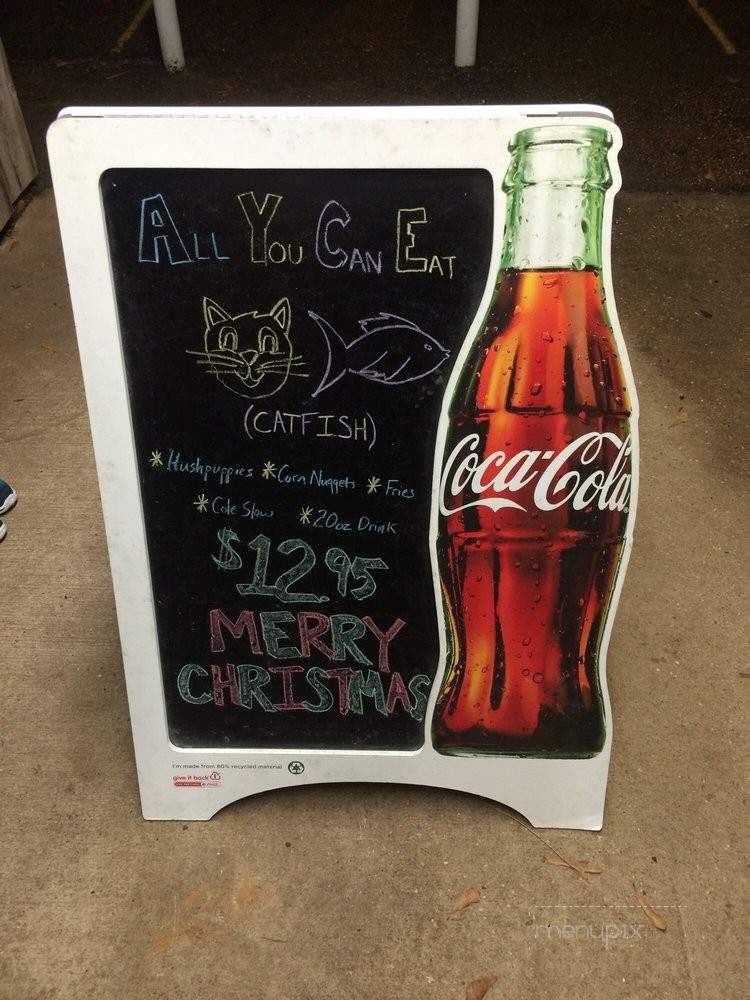 All You Can Eat
(CATFISH)
*Hushpuppies *Corn Nuggets *Fries
*Cole Slaw *20oz Drink
$12.95
MERRY
CHRISTMAS
Coca-Cola
I'm made from 80% recycled material
give it back
menupix